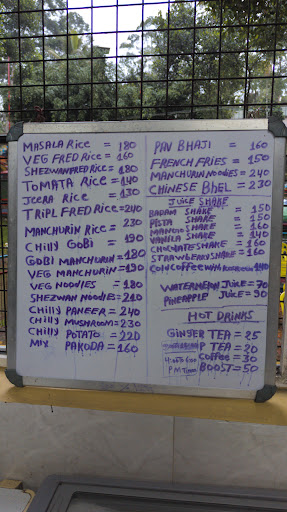 MASALA Rice = 180
VEG FRED Rice = 160
SHEZWAN FRED Rice = 180
TOMATA Rice = 140
JEERA Rice = 130
TRIPL FRED Rice = 240
MANCHURIN Rice = 230
CHilly GOBI = 190
GOBI MANCHURIN = 180
VEG MANCHURIN = 190
VEG NOODLES = 180
SHEZWAN NOODLES = 210
CHilly PANEER = 240
CHilly MUSHROOM = 230
CHilly POTATO = 220
MIX PAKODA = 160
PAV BHAJI = 160
FRENCH FRIES = 150
MANCHURIN NOODLES = 240
CHINESE BHEL = 230
JUICE SHAKE
BADAM SHAKE = 150
PISTA SHAKE = 150
MANGO SHAKE = 160
VANILA SHAKE = 140
CHOCLATE SHAKE = 160
STRAWBERRY SHAKE = 160
COLD COFFEE WITH ICECREAM 140
WATERMELON JUICE = 70
PINEAPPLE JUICE = 90
HOT DRINKS
GINGER TEA = 25
TEA = 20
COFFEE = 30
BOOST = 50